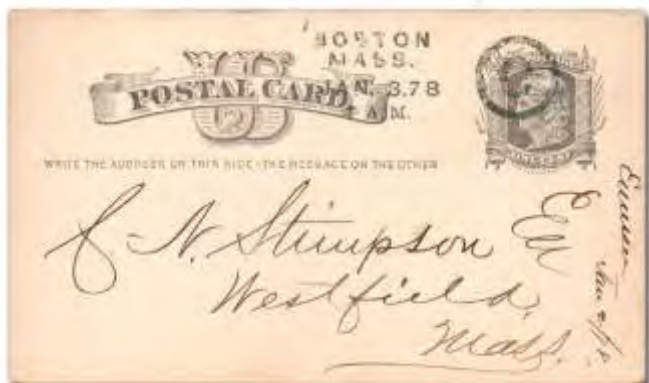 BOSTON
MASS.
JAN. 3.78
A.M.
US
POSTAL CARD
WRITE THE ADDRESS ON THIS SIDE - THE MESSAGE ON THE OTHER
C. N. Stimpson Esq
Westfield,
Mass.